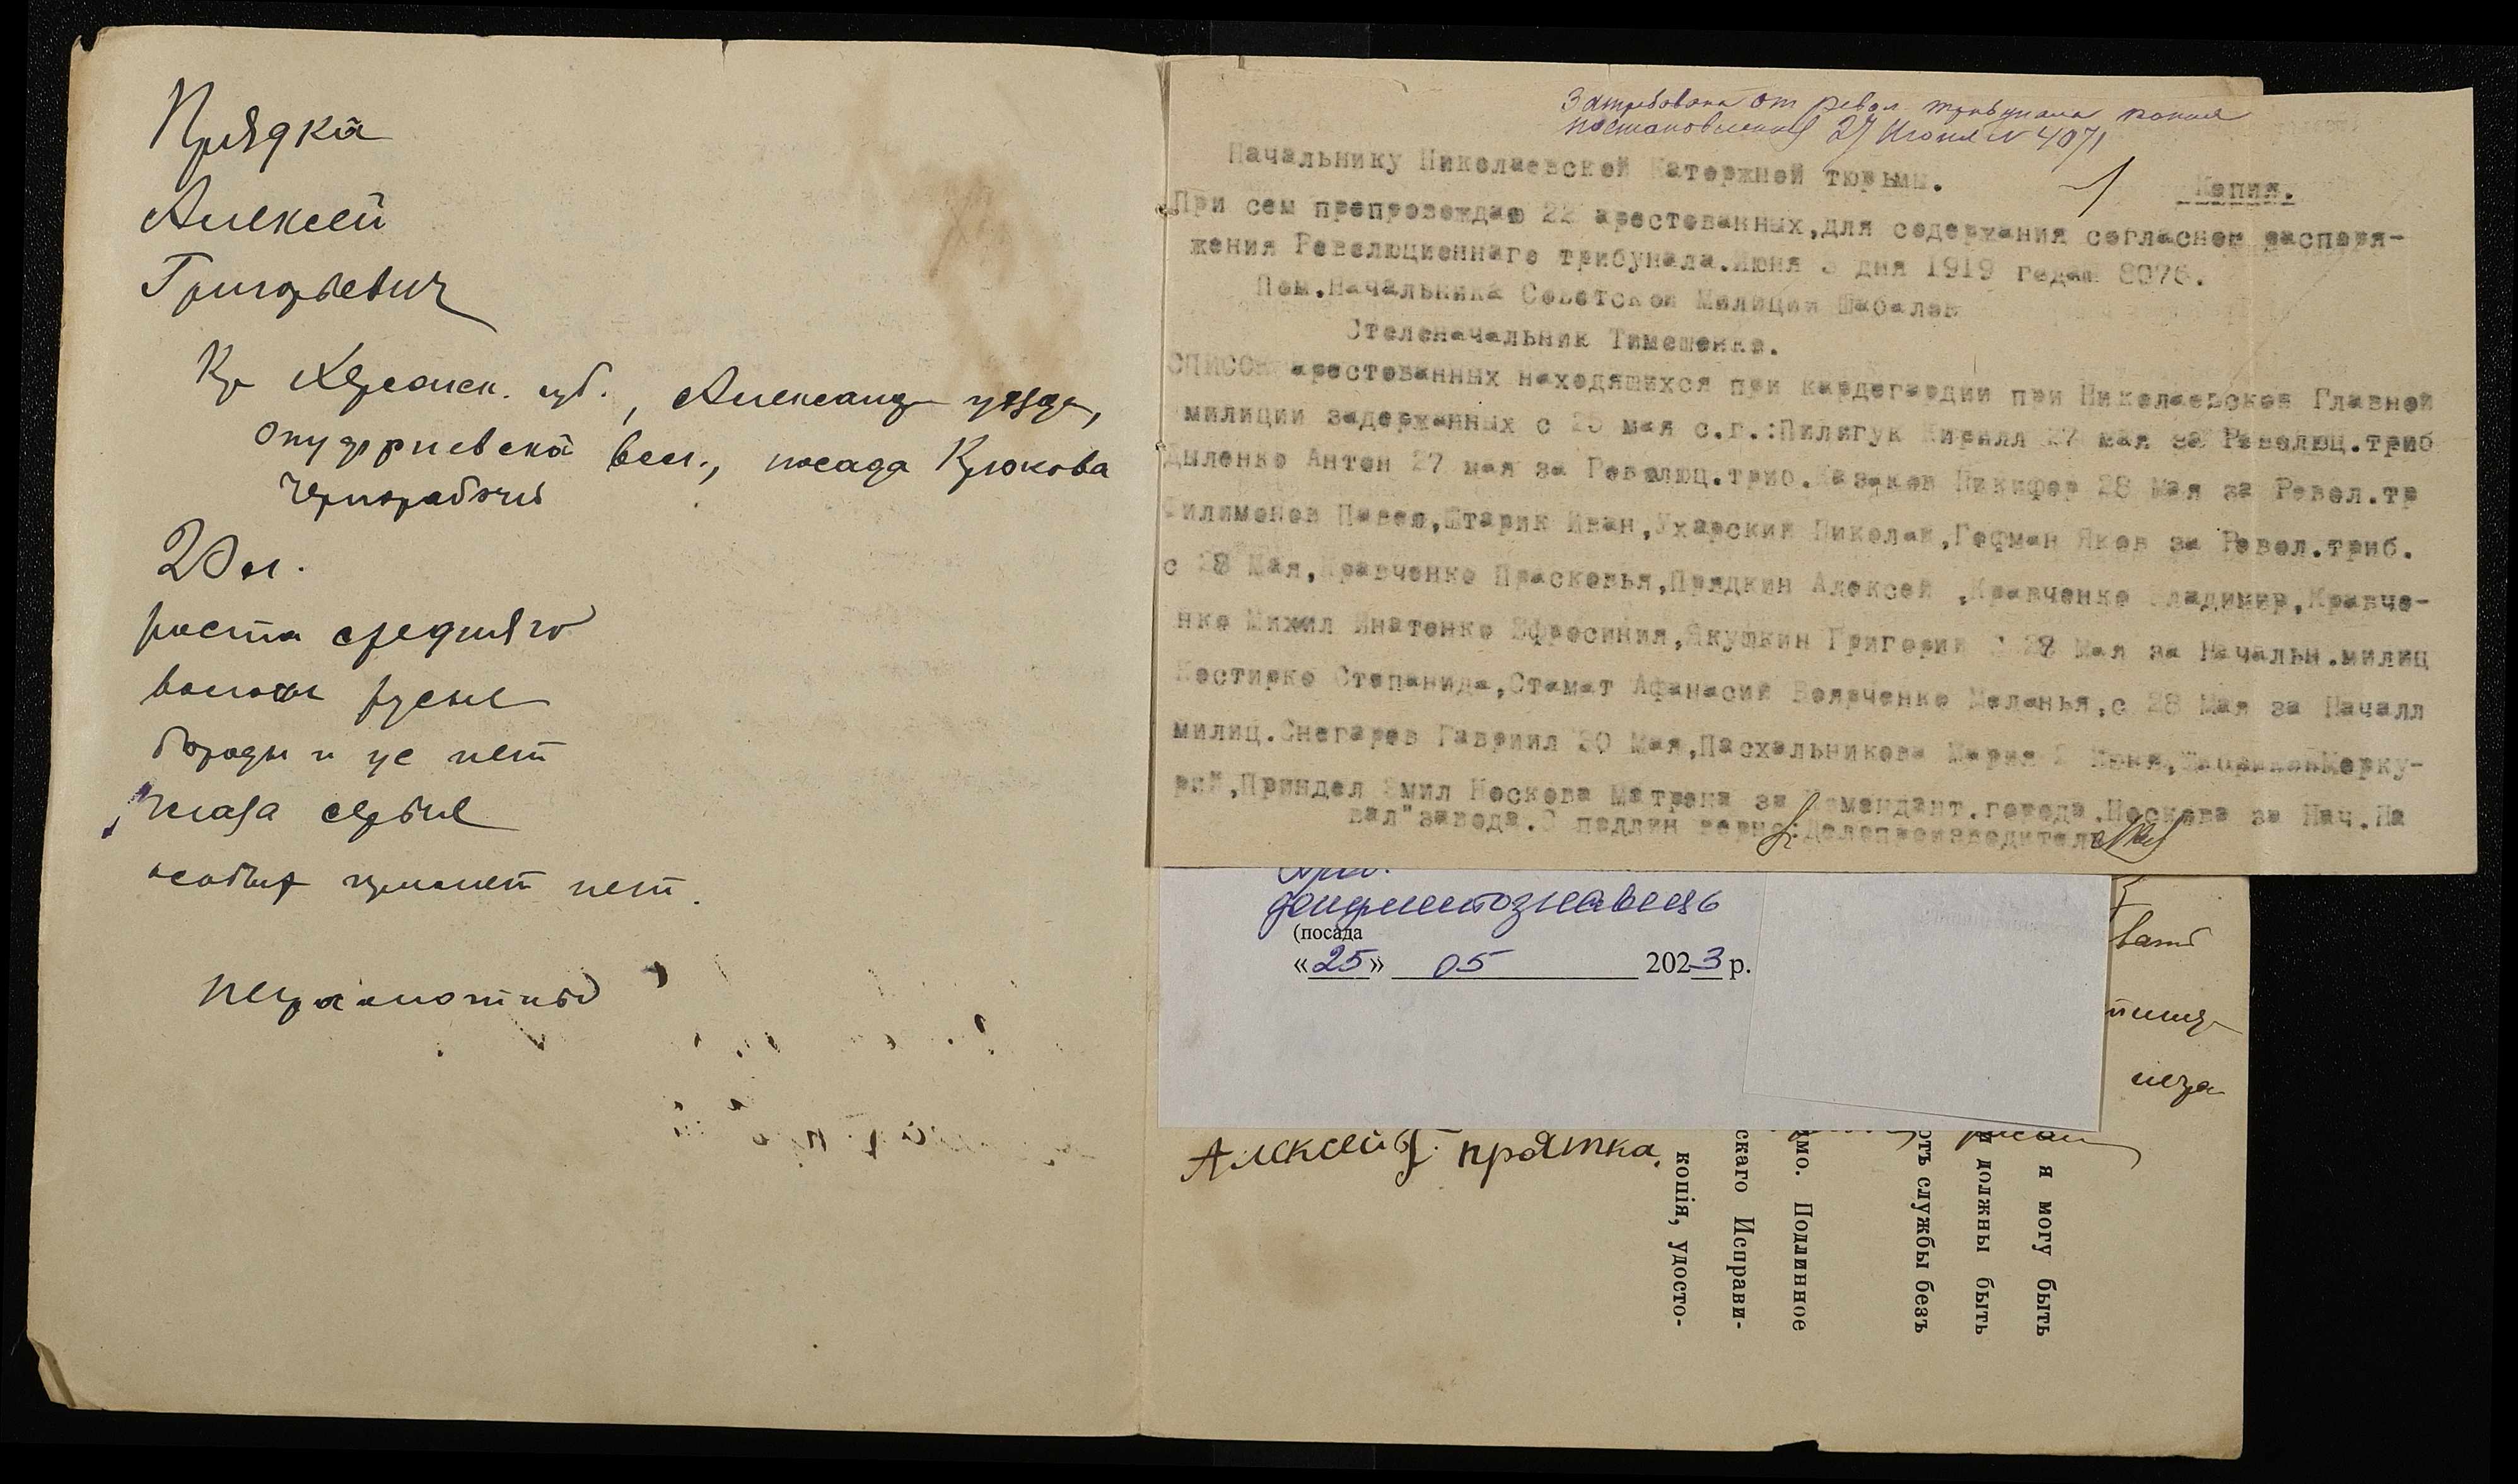 Прядка
Алексей
Григорьевич
Кр Херсонск. губ., Александр уезда,
Онуфриевска вол., посада Крюкова
Чернорабочий
20 л.
роста средняго
волосы русые
бороды и ус нет
глаза серые
особых примет нет.
неграмотный
Затребована от револ. трибунала копия
постановления 27 Июня № 4071
Начальнику Николаевской Катержней тюрьмы.
Копия.
При сем препровождаю 22 арестованных,для содержания согласнон распоря-
жения Революционнаго трибунала.Июня 3 дня 1919 года№ 8076.
Пом.Начальника Советской Милиции Шабалов
Столоначальник Тимошенко.
СПИСОК арестованных находящихся при кардегардии при Николаевской Главной
милиции задержанных с 25 мая с.г.:Пилягук Кирилл 27 мая за Революц.триб
Дыленко Антон 27 мая за Революц.триб.Казаков Никифор 28 Мая за Револ.тр
Филимонов Павел,Штарик Иван,Ухарский Николай,Гофман Яков за Револ.триб.
с 28 Мая,Кравченко Прасковья,Прядкин Алексей ,Кравченко Владимир,Кравче-
нко Михаил Инатенко Ефросиния,Якушкин Григорий С 28 Мая за Начальн.милиц
Костирко Степанида,Стамат Афанасий Волченко Меланья,с 28 Мая за Началл
милиц.Снегарев Гавриил 30 Мая,Пасхальникова Мария 2 Июня, Мерку-
рий,Приндел Эмил Носкова Матрена за Комендант.города,Носкова за Нач.На
вал"завода.С подлин верно:Делопроизводитель
документознавець
(посада
«25» 05 2023 р.
вать
неза
Алексей Г. прятка.
я могу быть
должны быть
отъ службы безъ
имо. Подлинное
скаго Исправи-
копія, удосто-